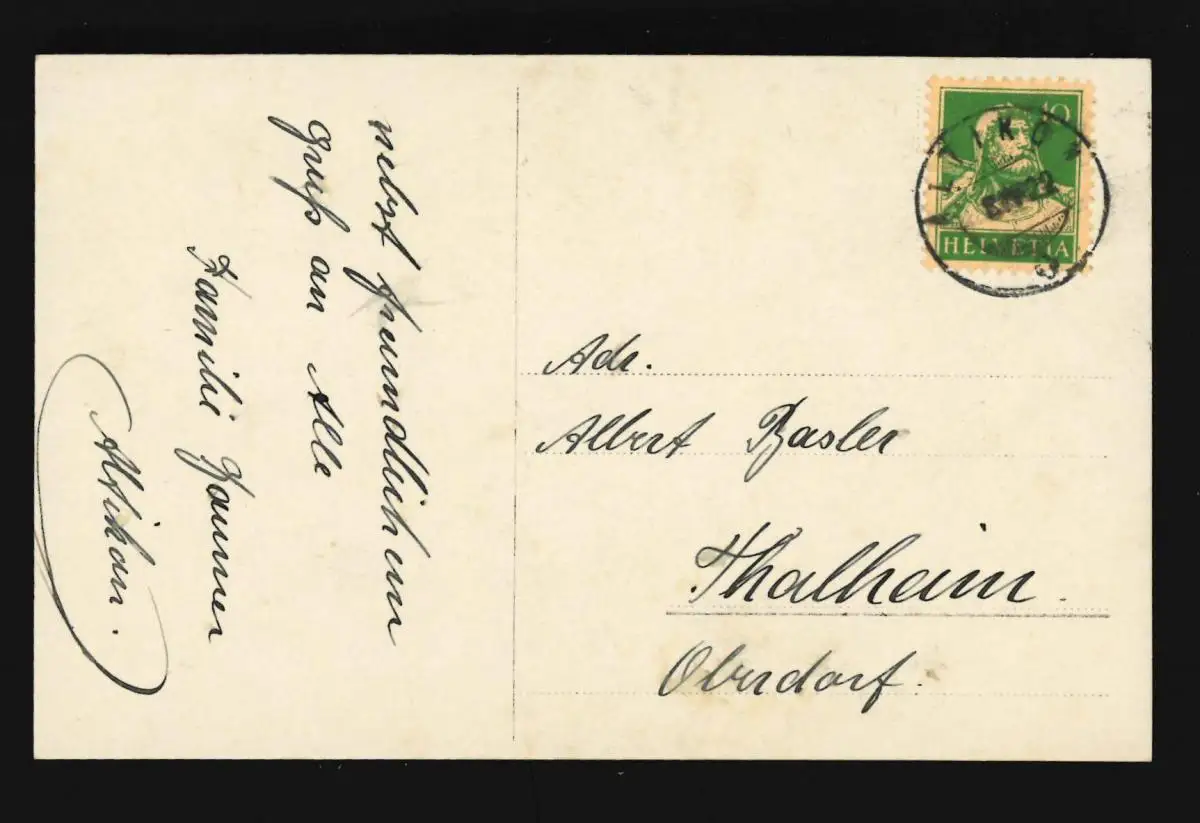 nebst freundlichem
Gruss an Alle
Familie
Altikon.
10
HELVETIA
ALTIKO
Adr.
Albert Basler
Thalheim.
Oberdorf.